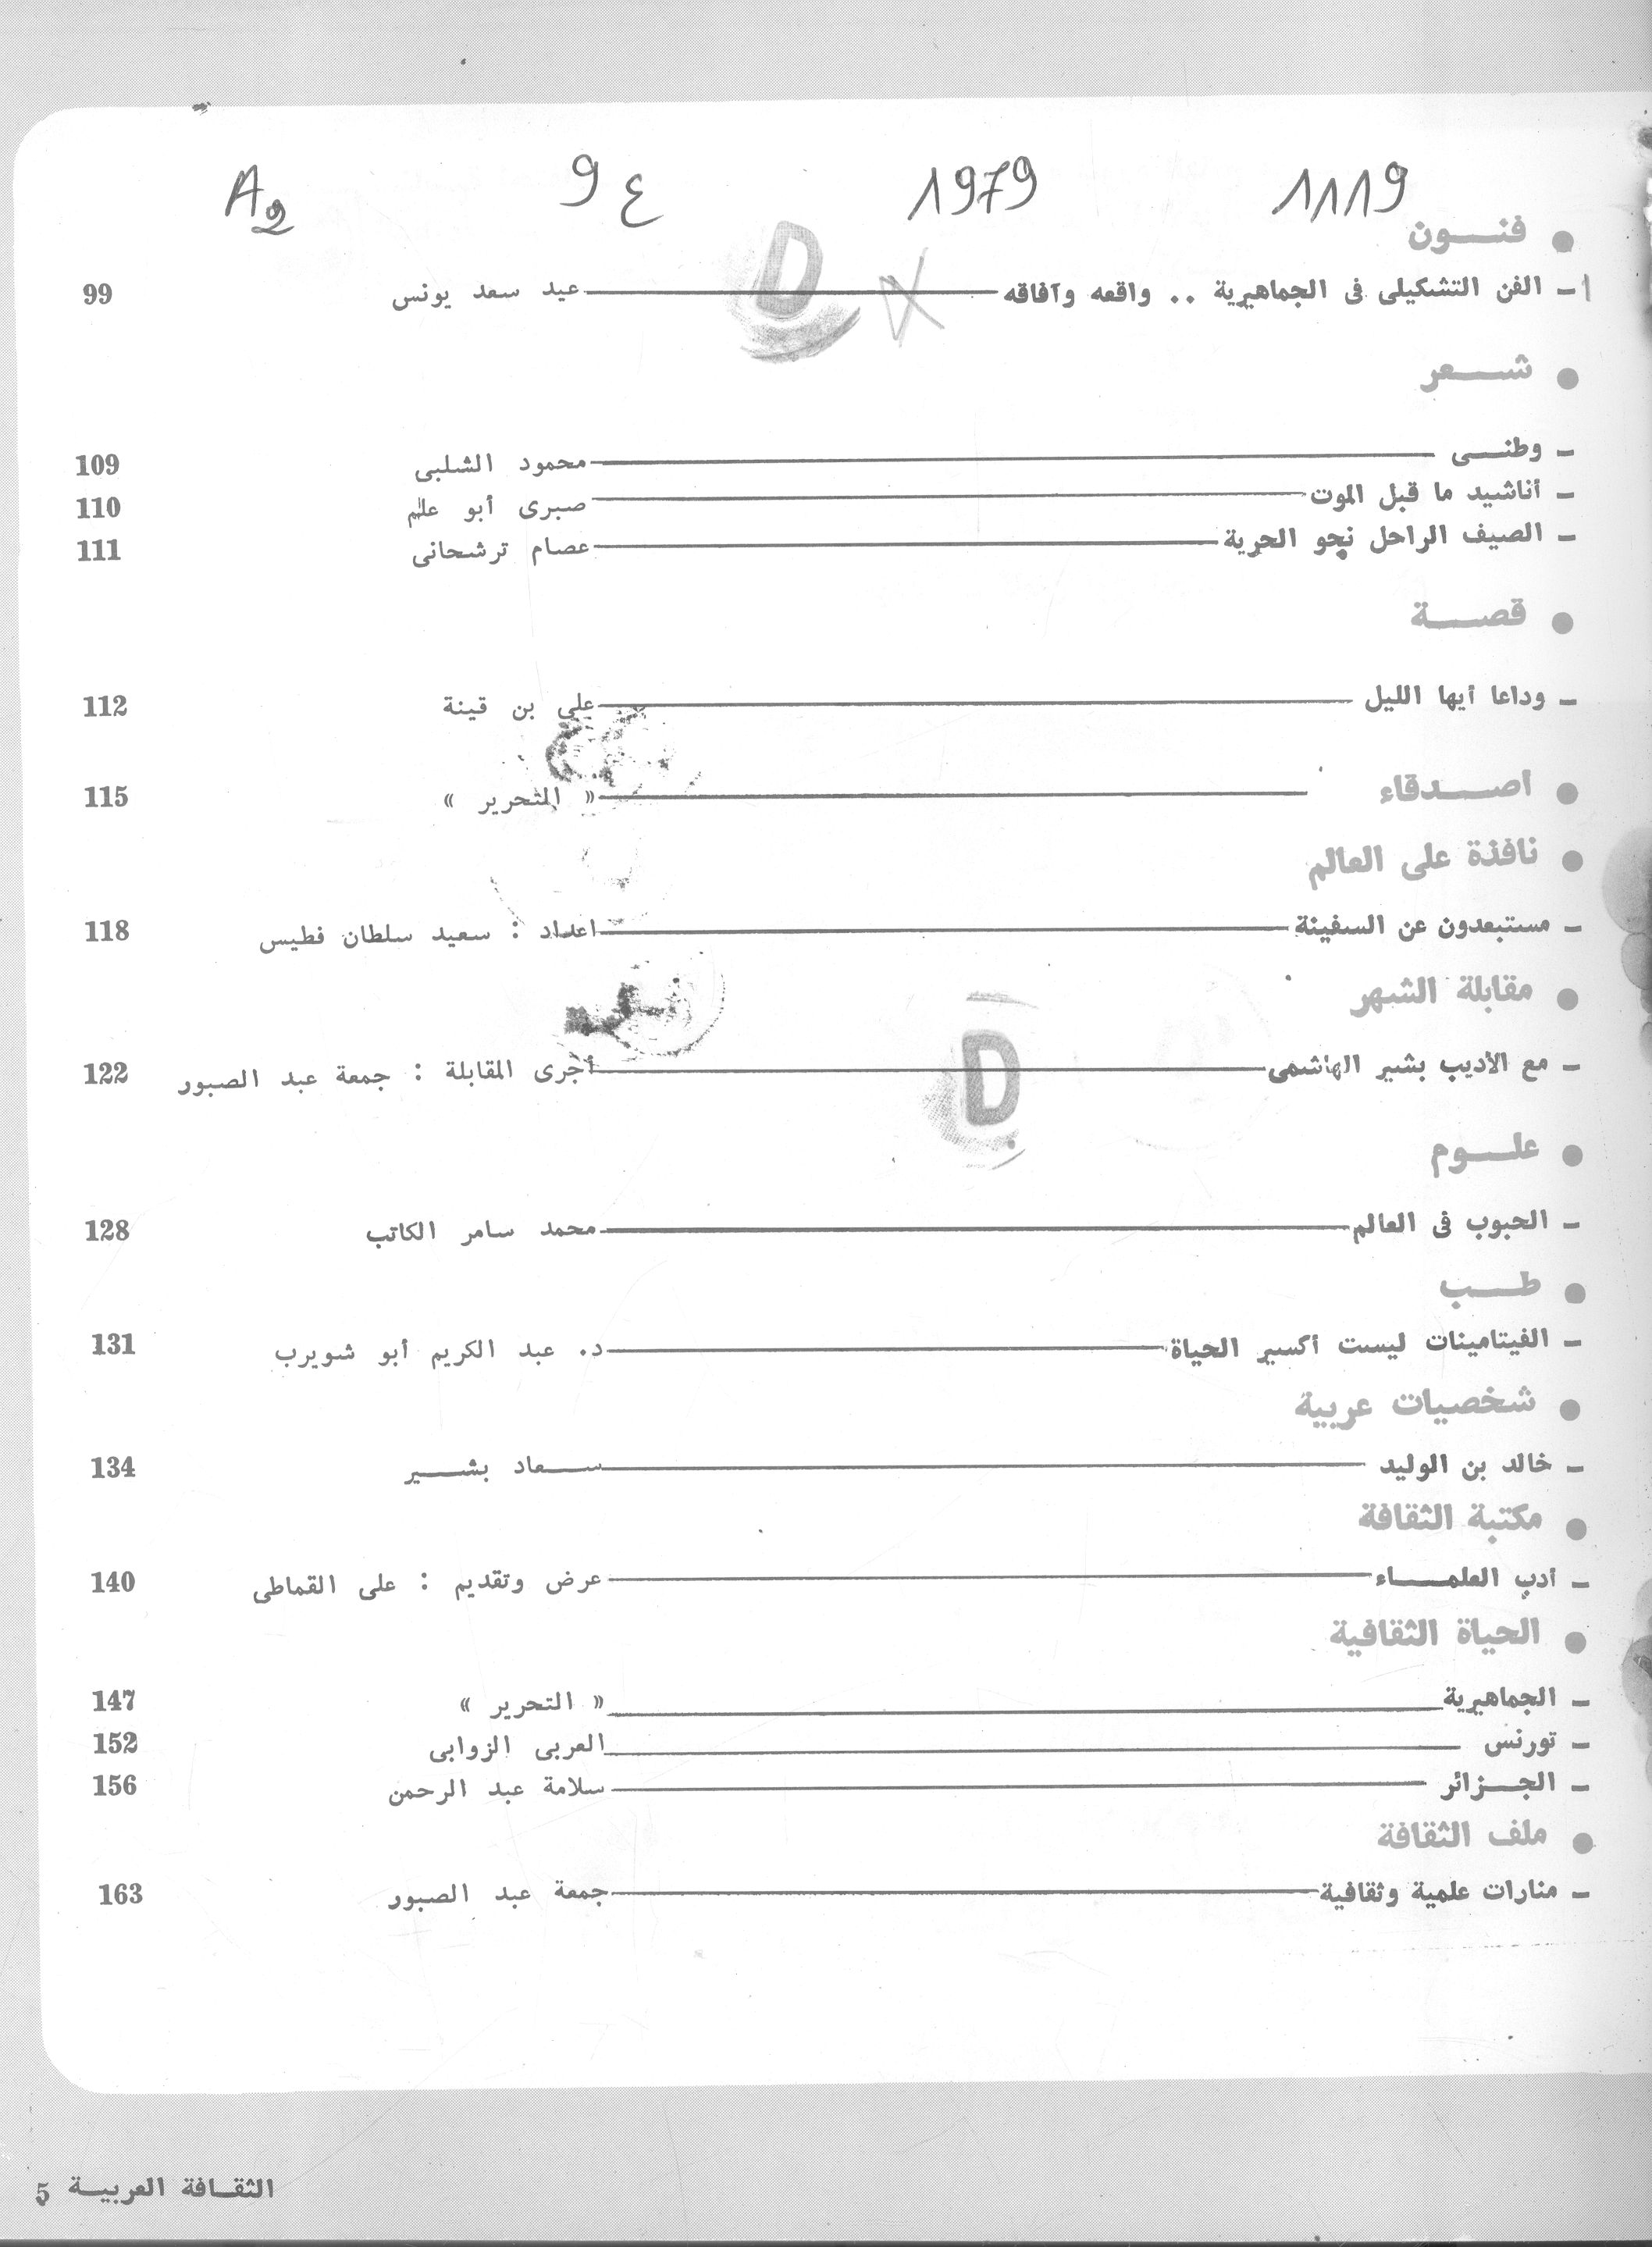 1119 1979 9 ع A2
● فنــون
- الفن التشكيلى فى الجماهيرية .. واقعه وآفاقه عيد سعد يونس 99
D
● شــعر
- وطنــى محمود الشلبى 109
- أناشيد ما قبل الموت صبرى أبو علم 110
- الصيف الراحل نحو الحرية عصام ترشحانى 111
● قصــة
- وداعا أيها الليل على بن قينة 112
● اصــدقاء « التحرير » 115
● نافذة على العالم
- مستبعدون عن السفينة اعداد : سعيد سلطان فطيس 118
● مقابلة الشهر
- مع الأديب بشير الهاشمى أجرى المقابلة : جمعة عبد الصبور 122
D
● علــوم
- الحبوب فى العالم محمد سامر الكاتب 128
● طــب
- الفيتامينات ليست أكسير الحياة د. عبد الكريم أبو شويرب 131
● شخصيات عربية
- خالد بن الوليد ســعاد بشــير 134
● مكتبة الثقافة
- أدب العلمــاء عرض وتقديم : على القماطى 140
● الحياة الثقافية
- الجماهيرية « التحرير » 147
- تورنس العربى الزوابى 152
- الجــزائر سلامة عبد الرحمن 156
● ملف الثقافة
- منارات علمية وثقافية جمعة عبد الصبور 163
الثقــافة العربيــة 5